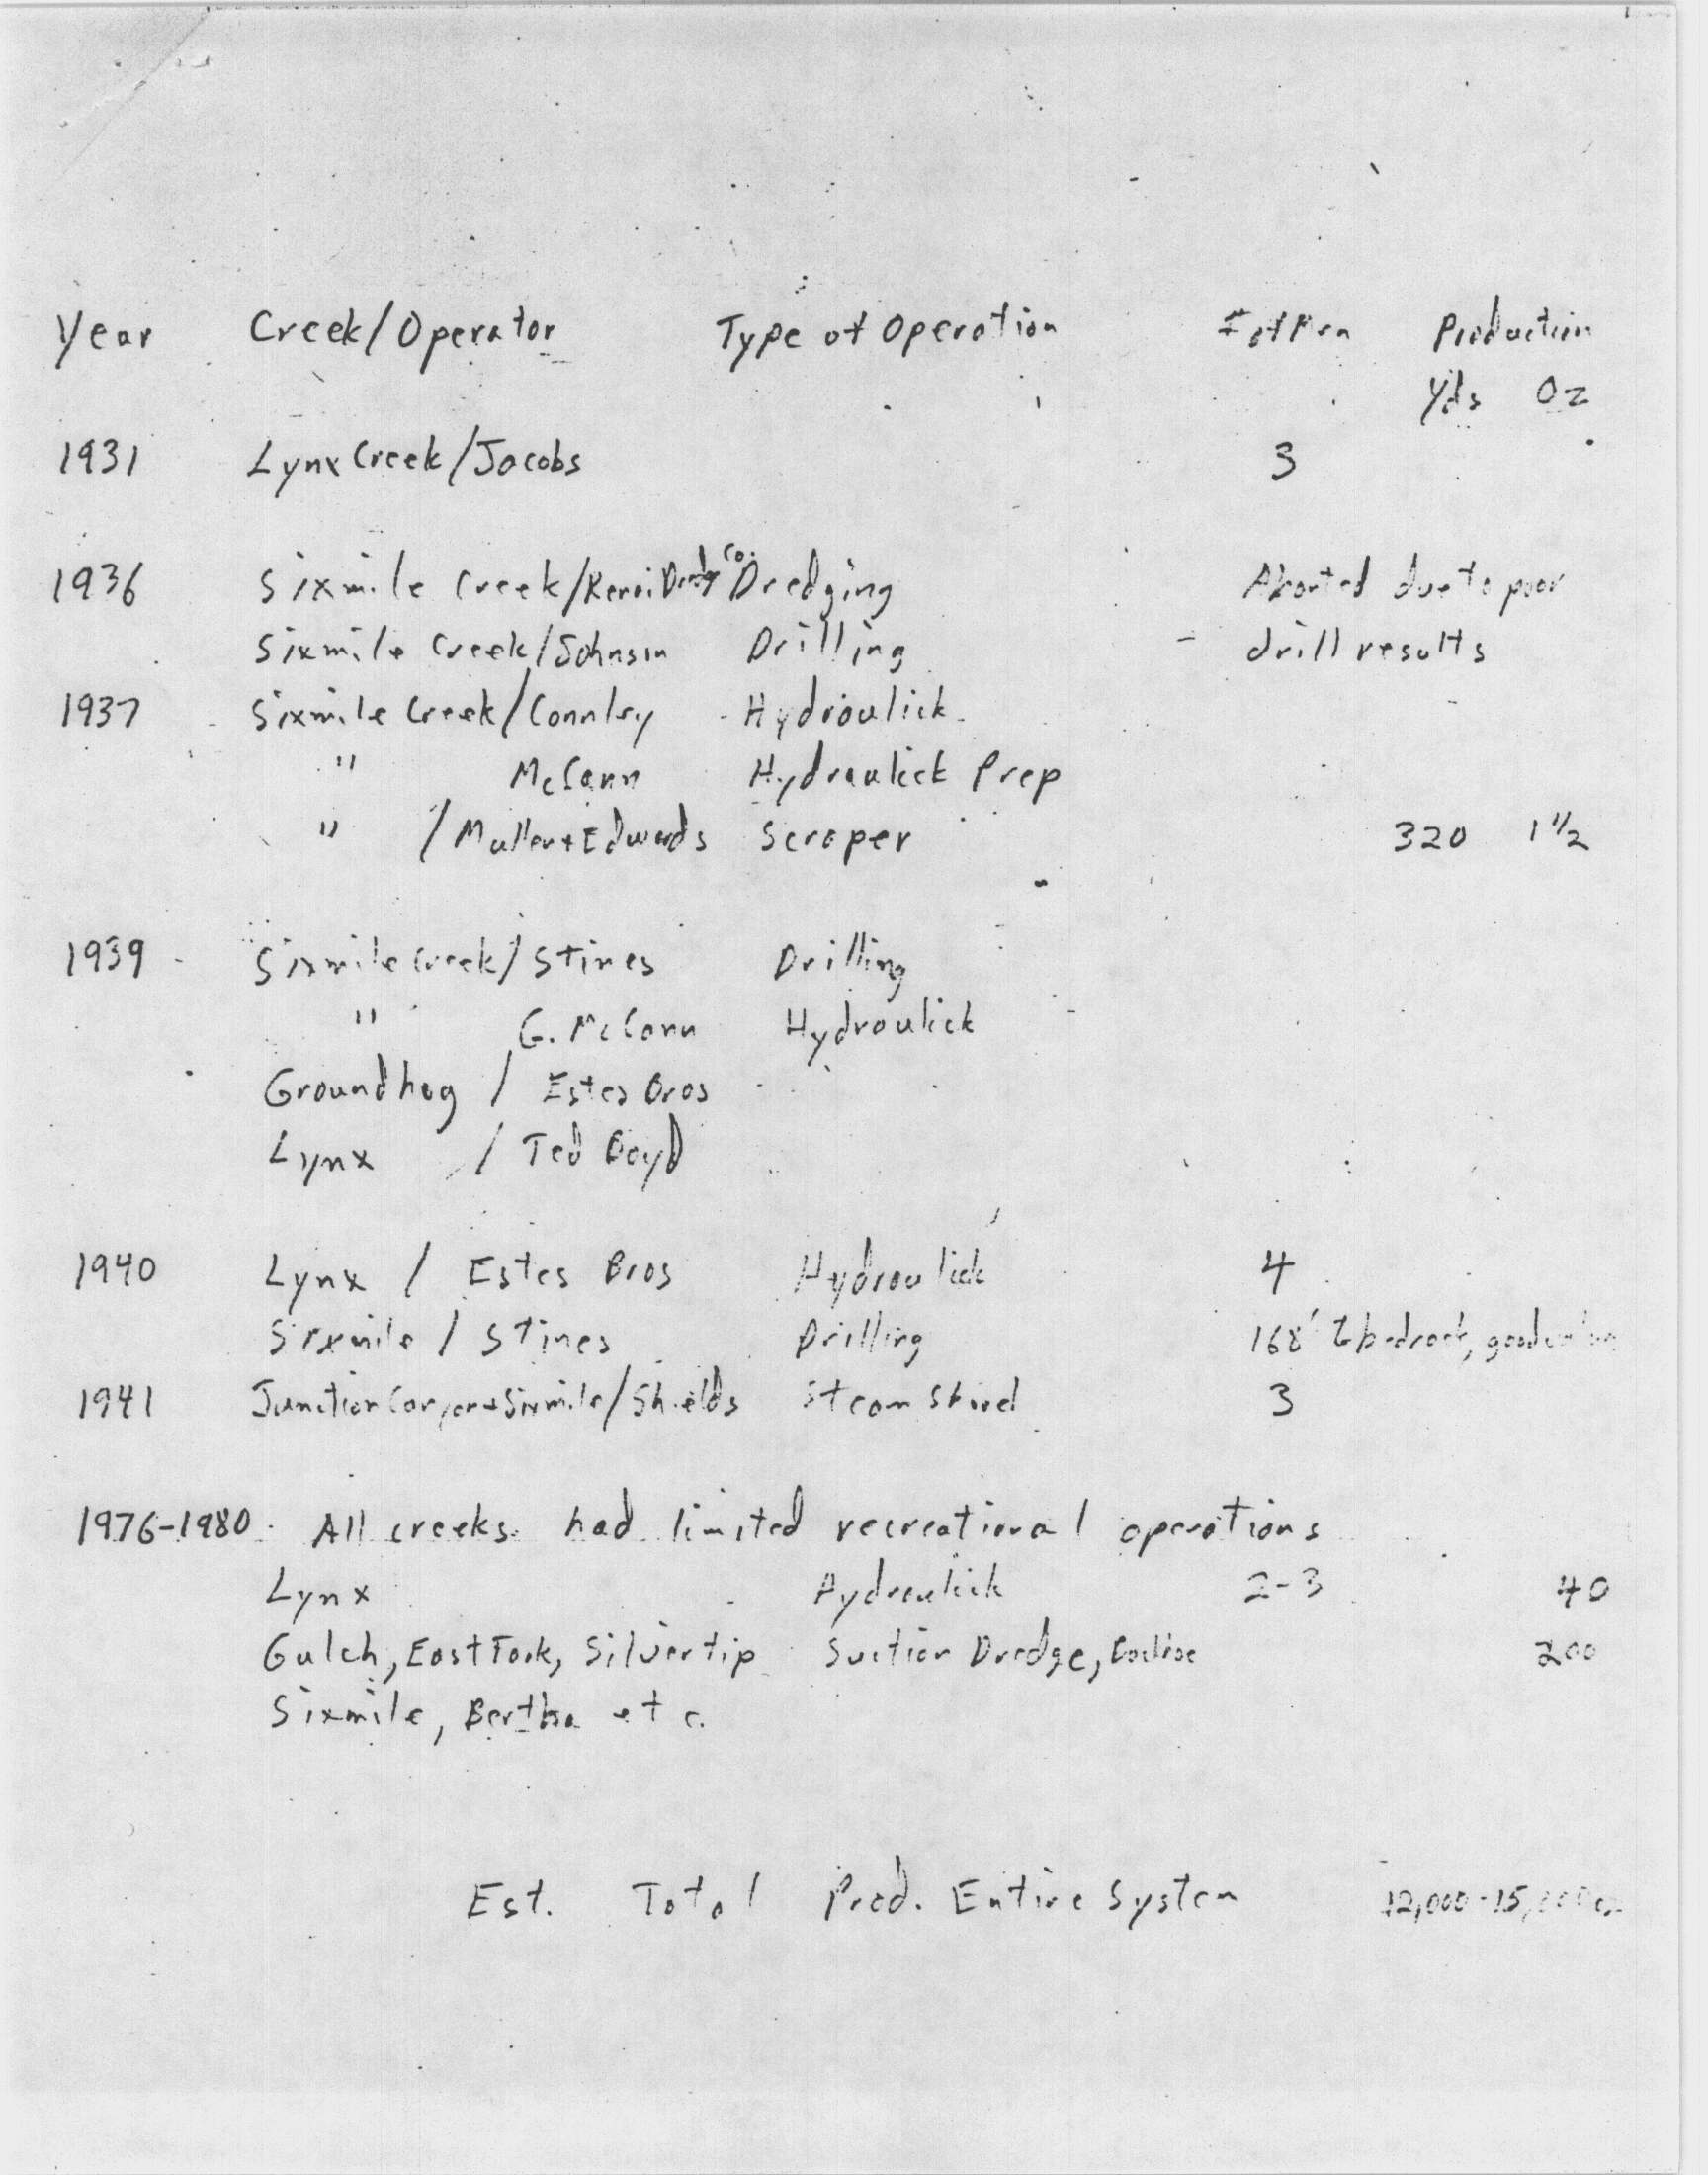 Year Creek/Operator Type of Operation # of Men Production
Yds Oz
1931 Lynx Creek/Jacobs 3
1936 Sixmile Creek/Kenai Dredge Co. Dredging Aborted due to poor
Sixmile Creek/Johnson Drilling drill results
1937 Sixmile Creek/Connley Hydraulick
" McCann Hydraulick Prep
" /Muller+Edwards Scraper 320 1 1/2
1939 Sixmile Creek/Stines Drilling
" G. McCann Hydraulick
Groundhog / Estes Bros
Lynx / Ted Boyd
1940 Lynx / Estes Bros Hydraulick 4
Sixmile / Stines Drilling 168' to bedrock, good
1941 Junction Canyon+Sixmile/Shields Steam Shovel 3
1976-1980 All creeks had limited recreational operations
Lynx Hydraulick 2-3 40
Gulch, East Fork, Silvertip Suction Dredge, 200
Sixmile, Bertha etc.
Est. Total Prod. Entire System 12,000-15,000 oz